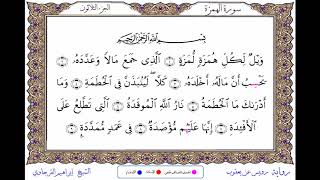 سورة الهمزة
الجزء الثلاثون
بِسْمِ اللَّهِ الرَّحْمَٰنِ الرَّحِيمِ
وَيْلٌ لِّكُلِّ هُمَزَةٍ لُّمَزَةٍ ۝ الَّذِى جَمَعَ مَالًا وَعَدَّدَهُۥ ۝
يَحْسِبُ أَنَّ مَالَهُۥٓ أَخْلَدَهُۥ ۝ كَلَّا ۖ لَيُنۢبَذَنَّ فِى الْحُطَمَةِ ۝ وَمَآ
أَدْرَىٰكَ مَا الْحُطَمَةُ ۝ نَارُ اللَّهِ الْمُوقَدَةُ ۝ الَّتِى تَطَّلِعُ عَلَى
الْأَفْـِٔدَةِ ۝ إِنَّهَا عَلَيْهُم مُّؤْصَدَةٌ ۝ فِى عَمَدٍ مُّمَدَّدَةٍۭ ۝
رواية رويس عن يعقوب
الشيخ إبراهيم الفرجاوي